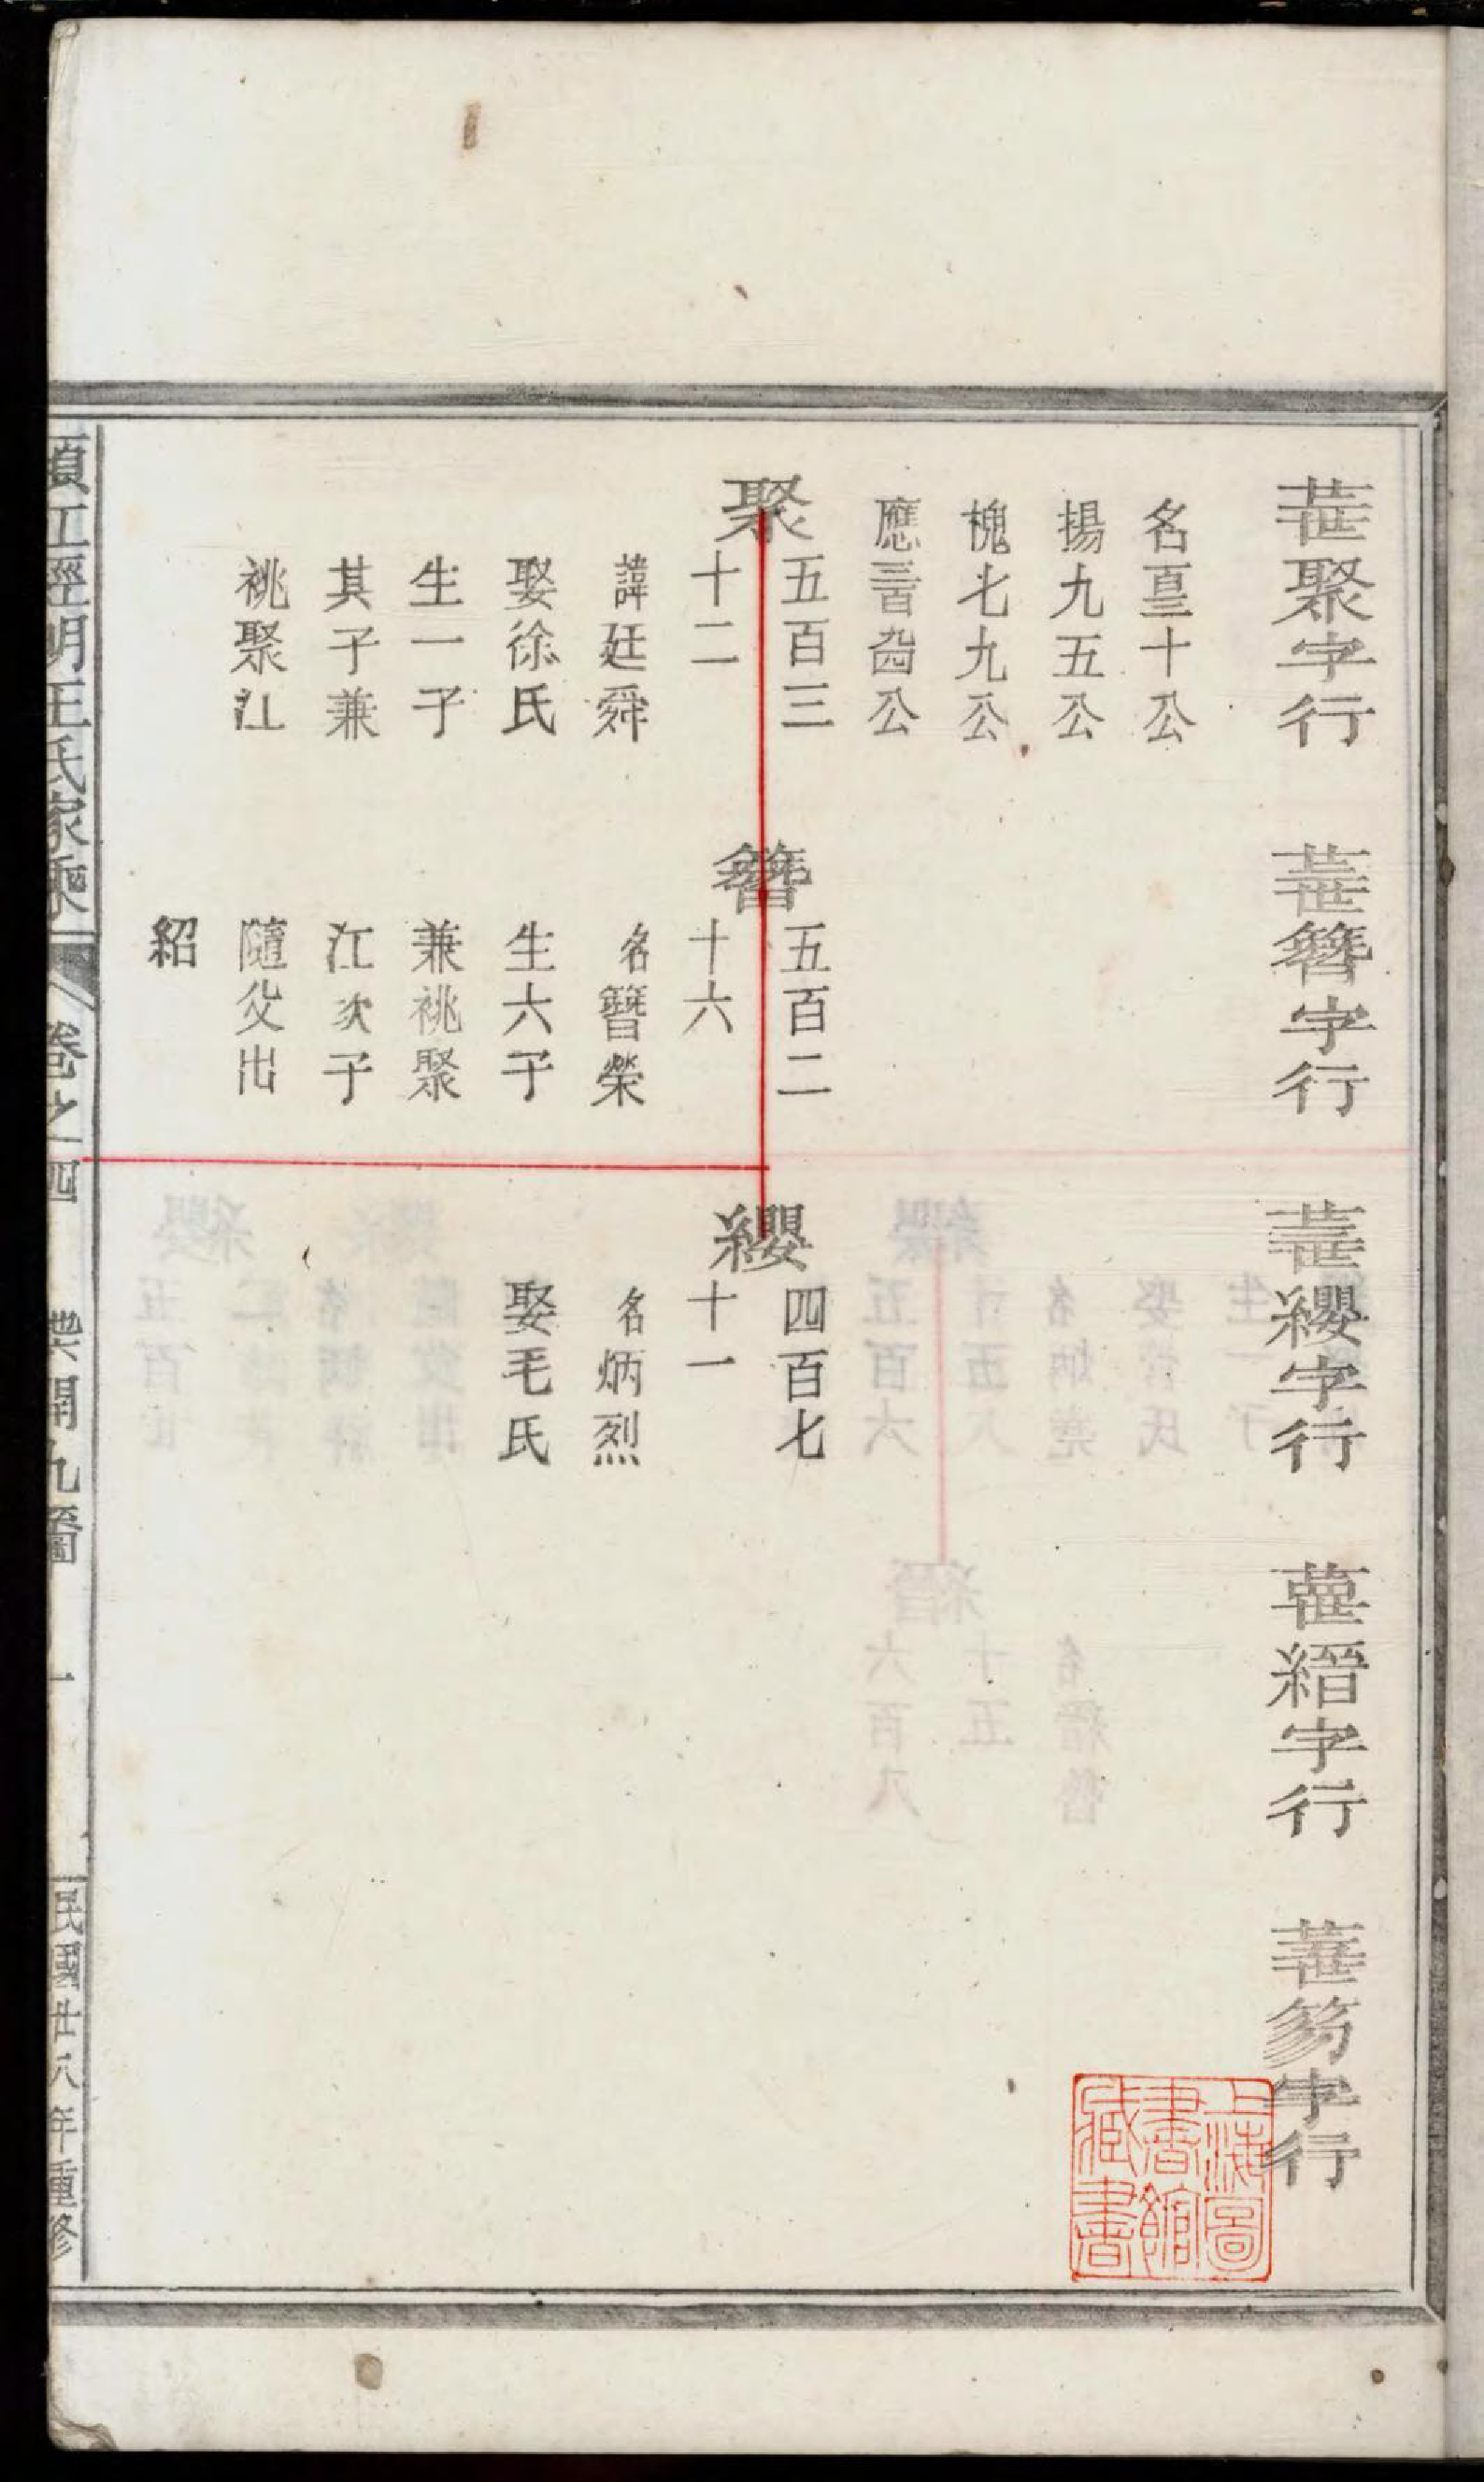 聚字行
簪字行
纓字行
縉字行
笏字行
名百三十公
揚九五公
槐七九公
應三百公
聚
五百三
十二
諱廷舜
娶徐氏
生一子
其子兼
祧聚江
簪
五百二
十六
名簪榮
生六子
兼祧聚
江次子
隨父出
紹
纓
四百七
十一
名炳烈
娶毛氏
須江經明王氏家乘
卷之四
開九
一
民國廿八年重修
上海圖
書館
藏書